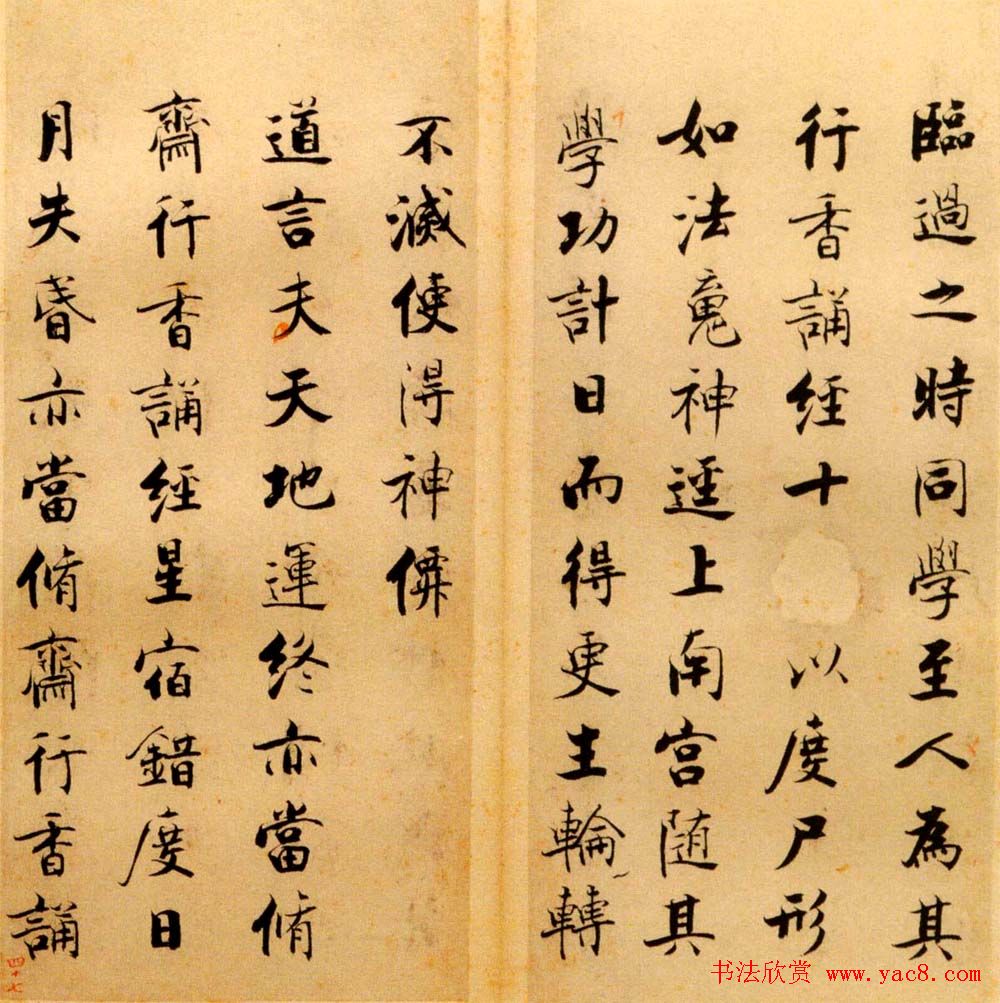 臨過之時同學至人為其
行香誦經十以度尸形
如法魂神逕上南宮随其
學功計日而得更生輪轉
不滅便得神僊
道言夫天地運終亦當脩
齋行香誦經星宿錯度日
月失昏亦當脩齋行香誦
四十七
书法欣赏 www.yac8.com